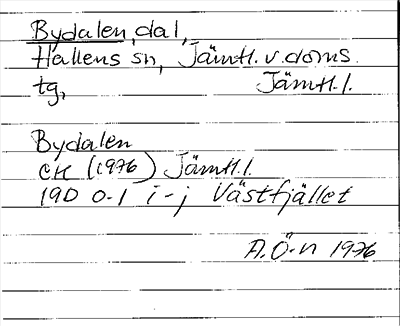 Bydalen, dal,
Hallens sn, Jämtl. v. doms.
tg, Jämtl. l.
Bydalen
CK (1976) Jämtl. l.
19D 0-1 i-j Västfjället
A.Ö-n 1976